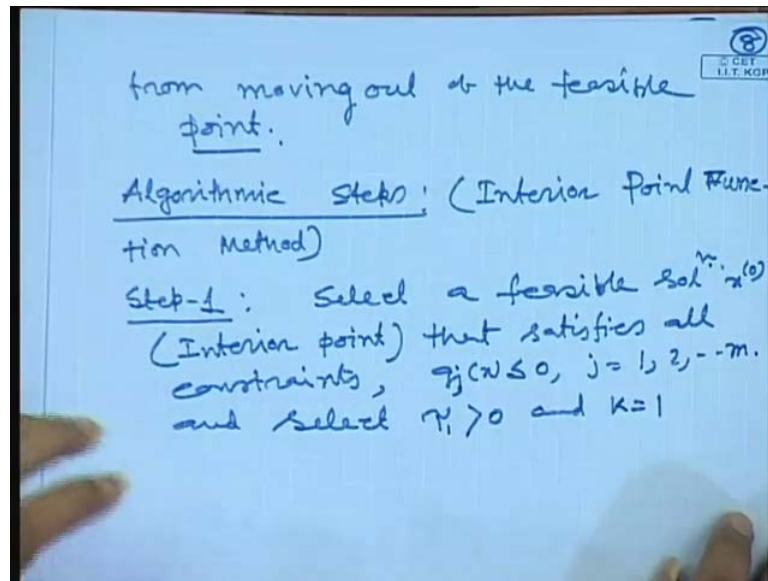 8
© CET
I.I.T. KGP
from moving out of the feasible
point.
Algorithmic Steps: (Interior Point Func-
tion Method)
Step-1: Select a feasible solⁿ. x⁽⁰⁾
(Interior point) that satisfies all
constraints, gj(x) ≤ 0, j = 1, 2, --m.
and select r₁ > 0 and K = 1